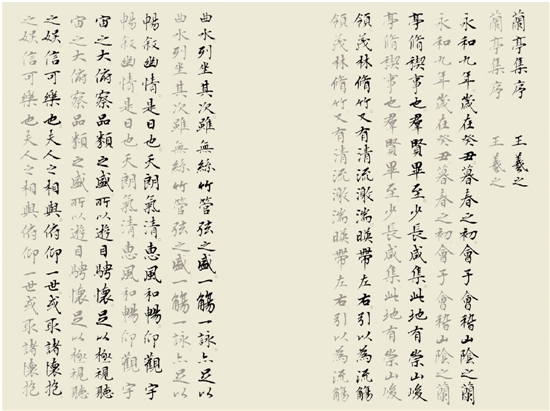 蘭亭集序 王羲之
蘭亭集序 王羲之
永和九年歲在癸丑暮春之初會于會稽山陰之蘭
永和九年歲在癸丑暮春之初會于會稽山陰之蘭
亭脩禊事也羣賢畢至少長咸集此地有崇山峻
亭脩禊事也羣賢畢至少長咸集此地有崇山峻
領茂林脩竹又有清流激湍暎帶左右引以為流觴
領茂林脩竹又有清流激湍暎帶左右引以為流觴
曲水列坐其次雖無絲竹管弦之盛一觴一詠亦足以
曲水列坐其次雖無絲竹管弦之盛一觴一詠亦足以
暢敘幽情是日也天朗氣清惠風和暢仰觀宇
暢敘幽情是日也天朗氣清惠風和暢仰觀宇
宙之大俯察品類之盛所以遊目騁懷足以極視聽
宙之大俯察品類之盛所以遊目騁懷足以極視聽
之娛信可樂也夫人之相與俯仰一世或取諸懷抱
之娛信可樂也夫人之相與俯仰一世或取諸懷抱